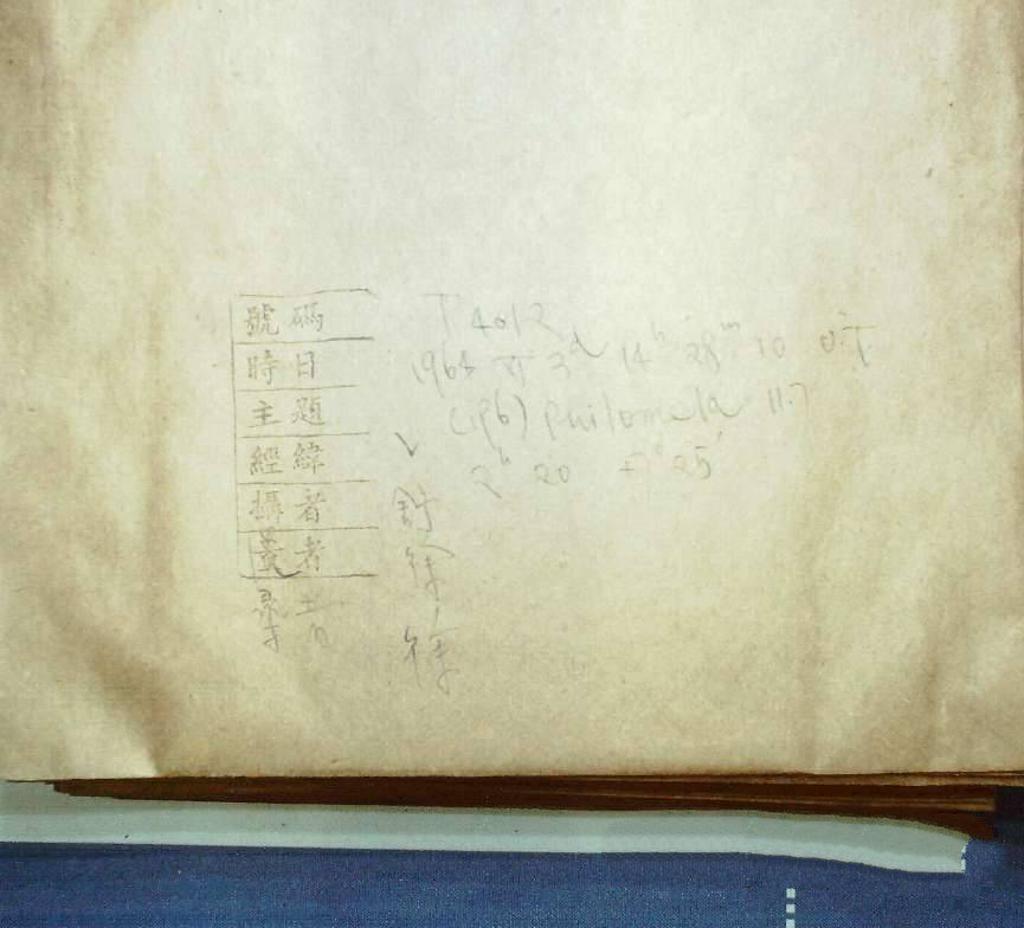 號碼 T 4012
時日 1964 XI 3d 14h 28m 10 U.T
主題 (196) Philomela 11.7
經緯 2h 20 +7° 25'
攝者 許
者 徐
者 徐